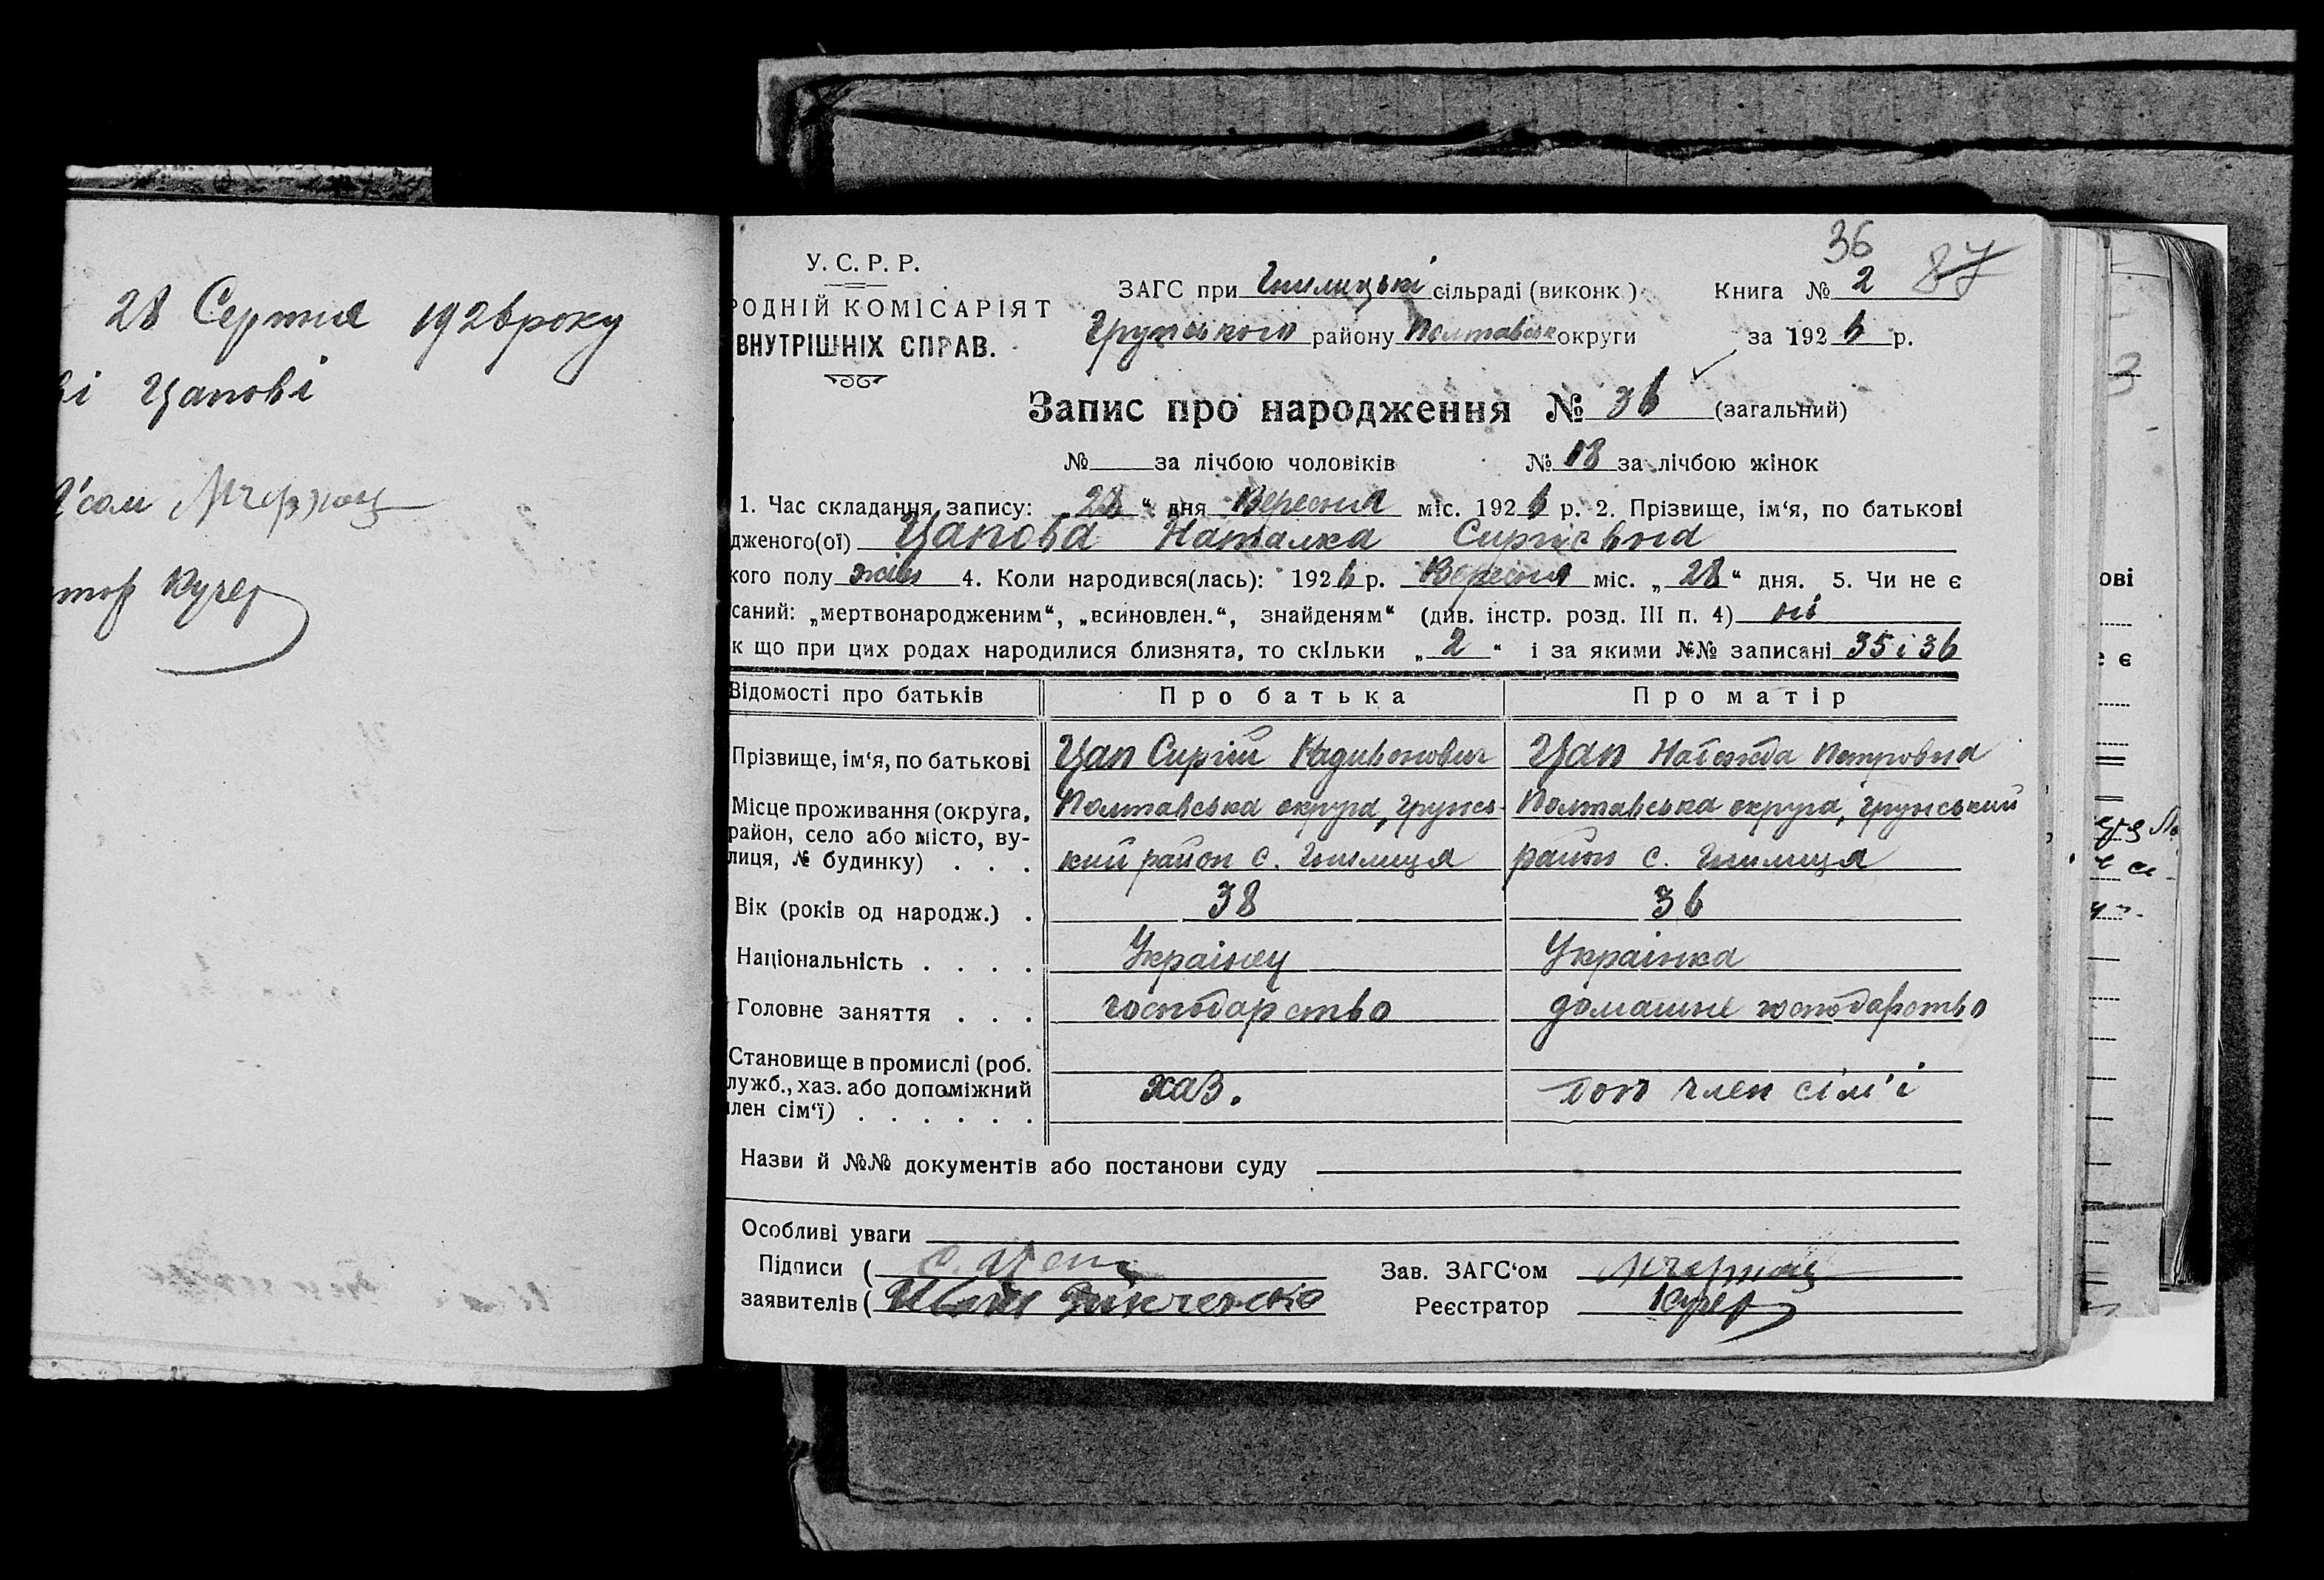 28 Серпня 1926 року
ві Цапові
Кучер
36
87
У. С. Р. Р.
РОДНІЙ КОМІСАРІЯТ
ВНУТРІШНІХ СПРАВ.
ЗАГС при Гнилицькі сільраді (виконк.)
Книга № 2
Грунського району Полтавськ округи
за 1926 р.
Запис про народження № 36 (загальний)
№ за лічбою чоловіків № 18 за лічбою жінок
1. Час складання запису: 28 “ дня Вересня міс. 1926 р. 2. Прізвище, ім‘я, по батькові
дженого(ої) Цапова Наталка Сиргієвна
кого полу жін 4. Коли народився(лась): 1926 р. Вересня міс. „ 28 “ дня. 5. Чи не є
саний: „мертвонародженим“, „всиновлен.“, знайденям“ (див. інстр. розд. III п. 4) ні
к що при цих родах народилися близнята, то скільки „ 2 “ і за якими №№ записані 35 і 36
Відомості про батьків Про батька Про матір
Прізвище, ім‘я, по батькові Цап Сиргій Родивонович Цап Надежда Петровна
Місце проживання (округа, Полтавська округа, Грунсь- Полтавська округа, Грунський
район, село або місто, ву-
лиця, № будинку) . . . кий район с. Гнилиця район с. Гнилиця
Вік (років од народж.) . 38 36
Національність . . . . Українец Українка
Головне заняття . . . господарство домашне господарство
Становище в промислі (роб.
лужб., хаз. або допоміжний хаз. доп член сім'ї
лен сім‘ї) . . . . . .
Назви й №№ документів або постанови суду
Особливі уваги
Підписи ( С. Цап
Зав. ЗАГС‘ом
заявителів (
Реєстратор Кучер
ові
е є